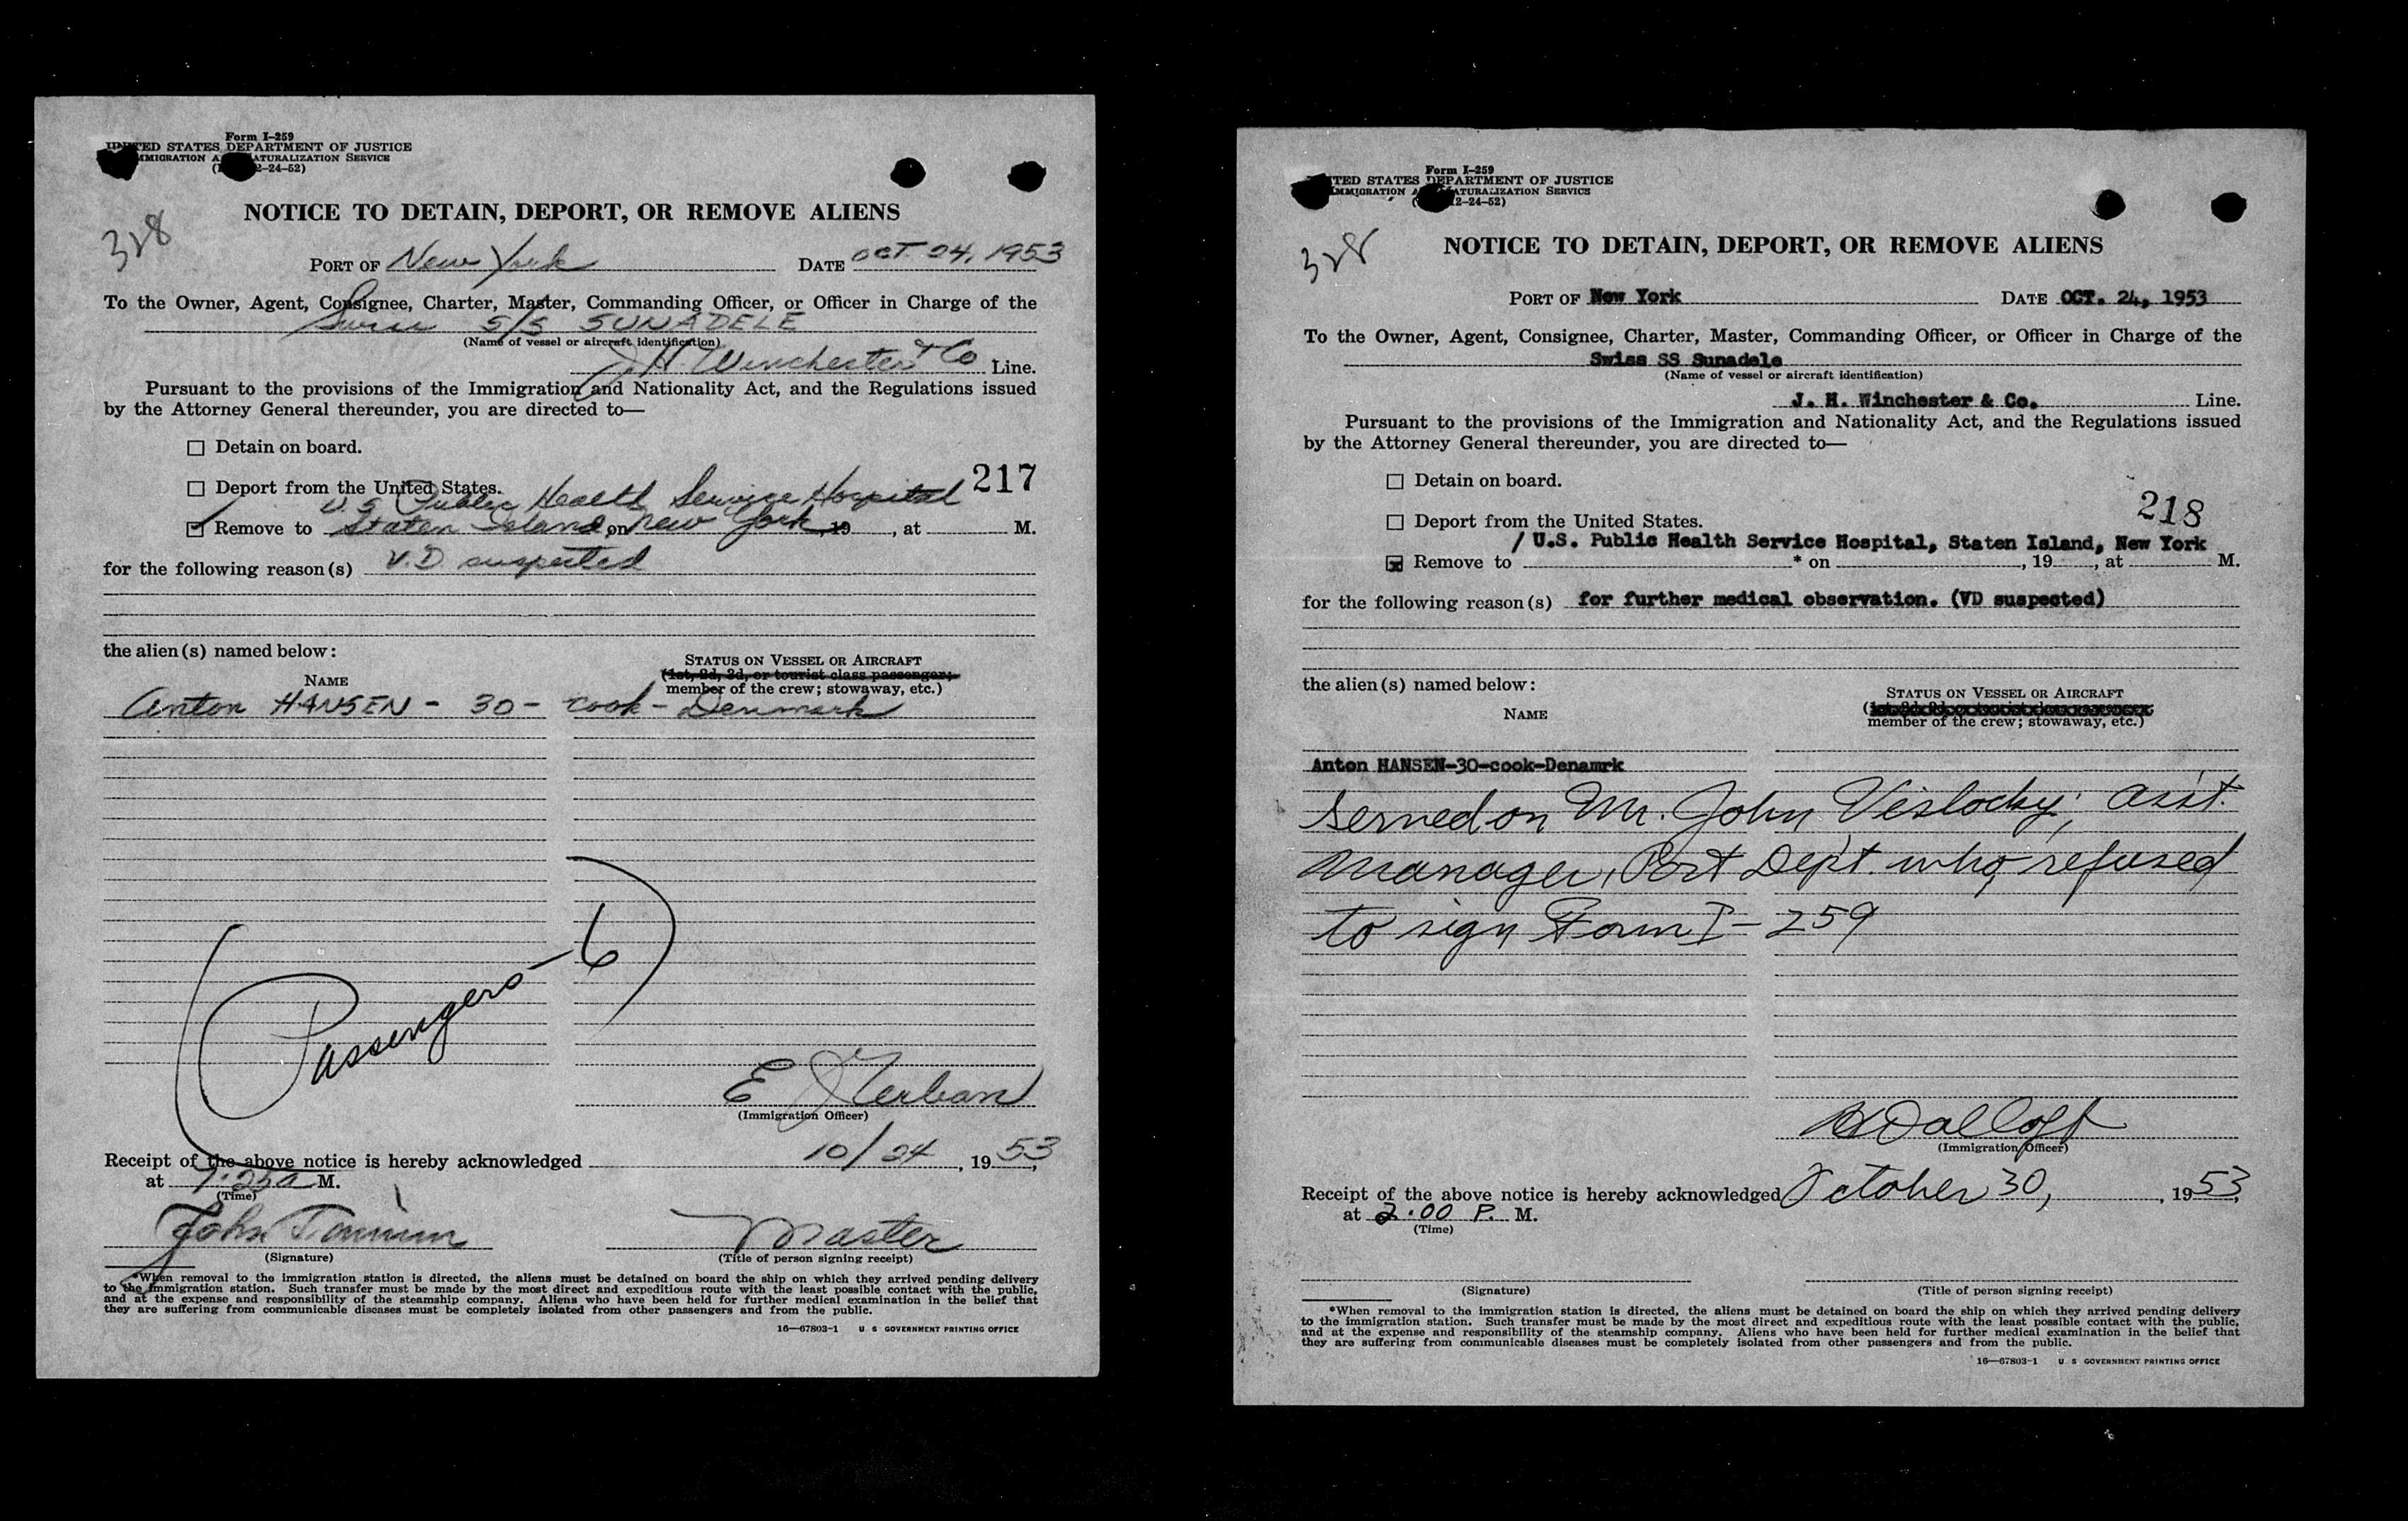 Form I-259
UNITED STATES DEPARTMENT OF JUSTICE
IMMIGRATION A NATURALIZATION SERVICE
2-24-52)
NOTICE TO DETAIN, DEPORT, OR REMOVE ALIENS
328
PORT OF New York DATE OCT. 24, 1953
To the Owner, Agent, Consignee, Charter, Master, Commanding Officer, or Officer in Charge of the
Swiss S/S SUNADELE
(Name of vessel or aircraft identification)
J H Winchester & Co Line.
Pursuant to the provisions of the Immigration and Nationality Act, and the Regulations issued
by the Attorney General thereunder, you are directed to—
Detain on board.
Deport from the United States. 217
U.S Public Health Service Hospital
Remove to Staten Island, on New York, 19 , at M.
for the following reason(s) V.D suspected
the alien(s) named below:
STATUS ON VESSEL OR AIRCRAFT
(1st, 2d, 3d, or tourist class passenger;
NAME member of the crew; stowaway, etc.)
Anton HANSEN - 30 - cook - Denmark
(Passengers - 6)
E
(Immigration Officer)
Receipt of the above notice is hereby acknowledged 10/24, 1953,
at 7:25a M.
(Time)
John Master
(Signature) (Title of person signing receipt)
*When removal to the immigration station is directed, the aliens must be detained on board the ship on which they arrived pending delivery
to the immigration station. Such transfer must be made by the most direct and expeditious route with the least possible contact with the public,
and at the expense and responsibility of the steamship company. Aliens who have been held for further medical examination in the belief that
they are suffering from communicable diseases must be completely isolated from other passengers and from the public.
16—67803-1 U. S GOVERNMENT PRINTING OFFICE
Form I-259
UNITED STATES DEPARTMENT OF JUSTICE
IMMIGRATION A NATURALIZATION SERVICE
12-24-52)
NOTICE TO DETAIN, DEPORT, OR REMOVE ALIENS
328
PORT OF New York DATE OCT. 24, 1953
To the Owner, Agent, Consignee, Charter, Master, Commanding Officer, or Officer in Charge of the
Swiss SS Sunadele
(Name of vessel or aircraft identification)
J. H. Winchester & Co. Line.
Pursuant to the provisions of the Immigration and Nationality Act, and the Regulations issued
by the Attorney General thereunder, you are directed to—
Detain on board.
Deport from the United States. 218
/ U.S. Public Health Service Hospital, Staten Island, New York
Remove to * on , 19 , at M.
for the following reason(s) for further medical observation. (VD suspected)
the alien(s) named below:
STATUS ON VESSEL OR AIRCRAFT
NAME member of the crew; stowaway, etc.)
Anton HANSEN-30-cook-Denamrk
served on Mr. John Vislocky, asst.
manager, Port Dept. who refused
to sign Form I-259
(Immigration Officer)
Receipt of the above notice is hereby acknowledged October 30, , 1953,
at 2:00 P. M.
(Time)
(Signature) (Title of person signing receipt)
*When removal to the immigration station is directed, the aliens must be detained on board the ship on which they arrived pending delivery
to the immigration station. Such transfer must be made by the most direct and expeditious route with the least possible contact with the public,
and at the expense and responsibility of the steamship company. Aliens who have been held for further medical examination in the belief that
they are suffering from communicable diseases must be completely isolated from other passengers and from the public.
16—67803-1 U. S GOVERNMENT PRINTING OFFICE